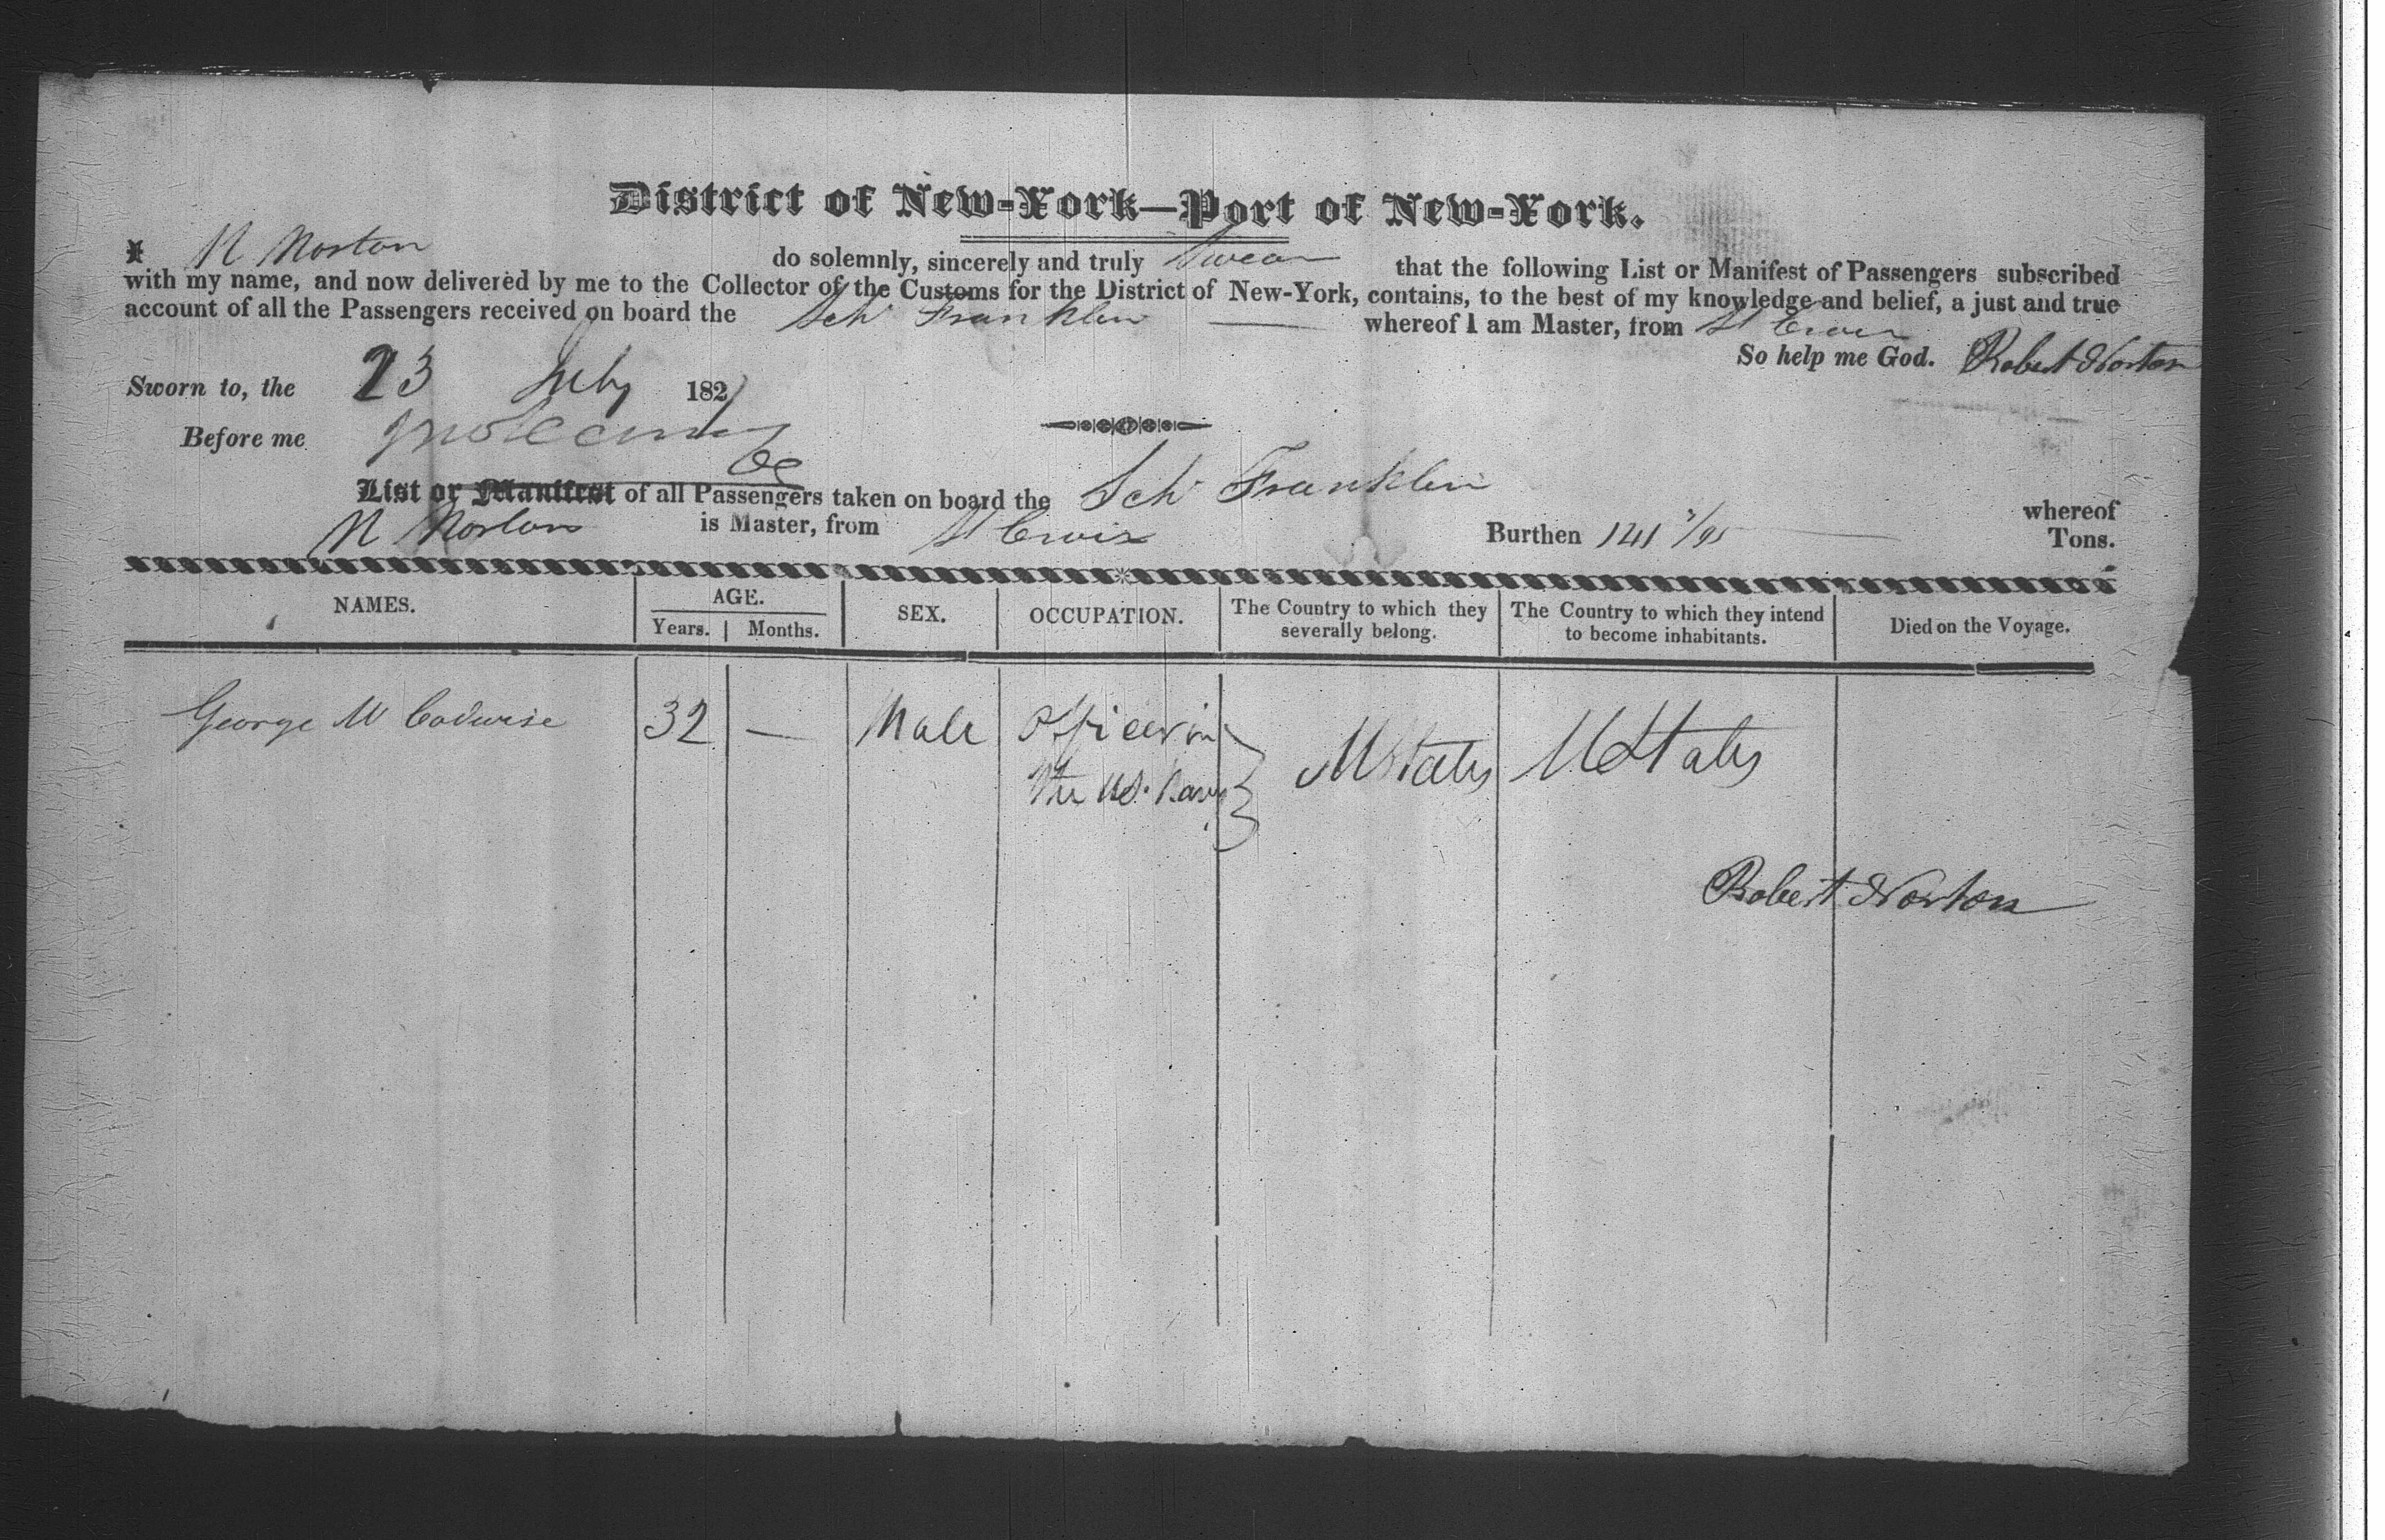 District of New-York—Port of New-York.
I R Norton do solemnly, sincerely and truly Swear that the following List or Manifest of Passengers subscribed
with my name, and now delivered by me to the Collector of the Customs for the District of New-York, contains, to the best of my knowledge and belief, a just and true
account of all the Passengers received on board the Sch Franklin whereof I am Master, from St Croix
So help me God. Robert Norton
Sworn to, the 23 July 182
Before me
List or Manifest of all Passengers taken on board the Sch Franklin whereof
R Norton is Master, from St Croix Burthen 141 /95 Tons.
NAMES. AGE. SEX. OCCUPATION. The Country to which they severally belong. The Country to which they intend to become inhabitants. Died on the Voyage.
Years. Months.
George W Codwise 32 — Male Officer in the US. Navy UStates UStates
Robert Norton